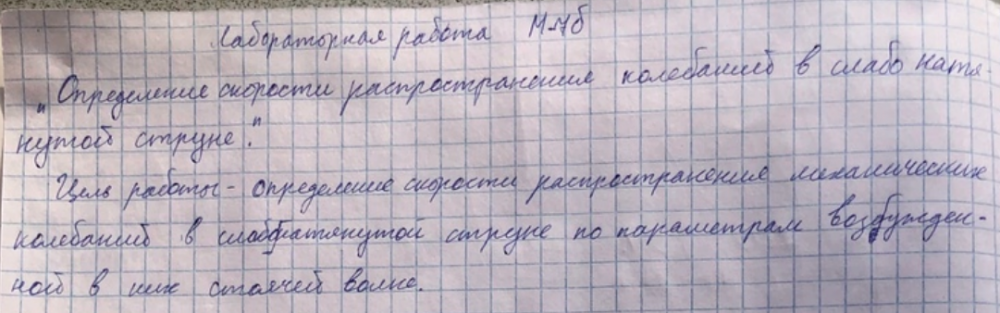 Лабораторная работа М-7б
"Определение скорости распространения колебаний в слабо натя-
нутой струне."
Цель работы - определение скорости распространения механических
колебаний в слабонатянутой струне по параметрам возбужден-
ной в них стоячей волне.